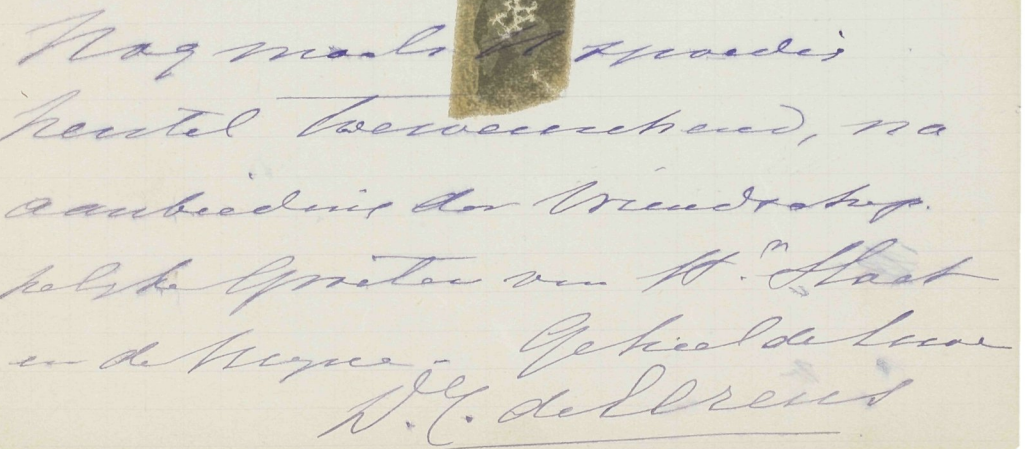 Nogmaals U spoedig
herstel toewenschend, na
aanbieding der vriendschap-
pelijke Groeten van Hrn Slaet
en de Mijne. - Geheel de Uwe
D. C. de Eerens